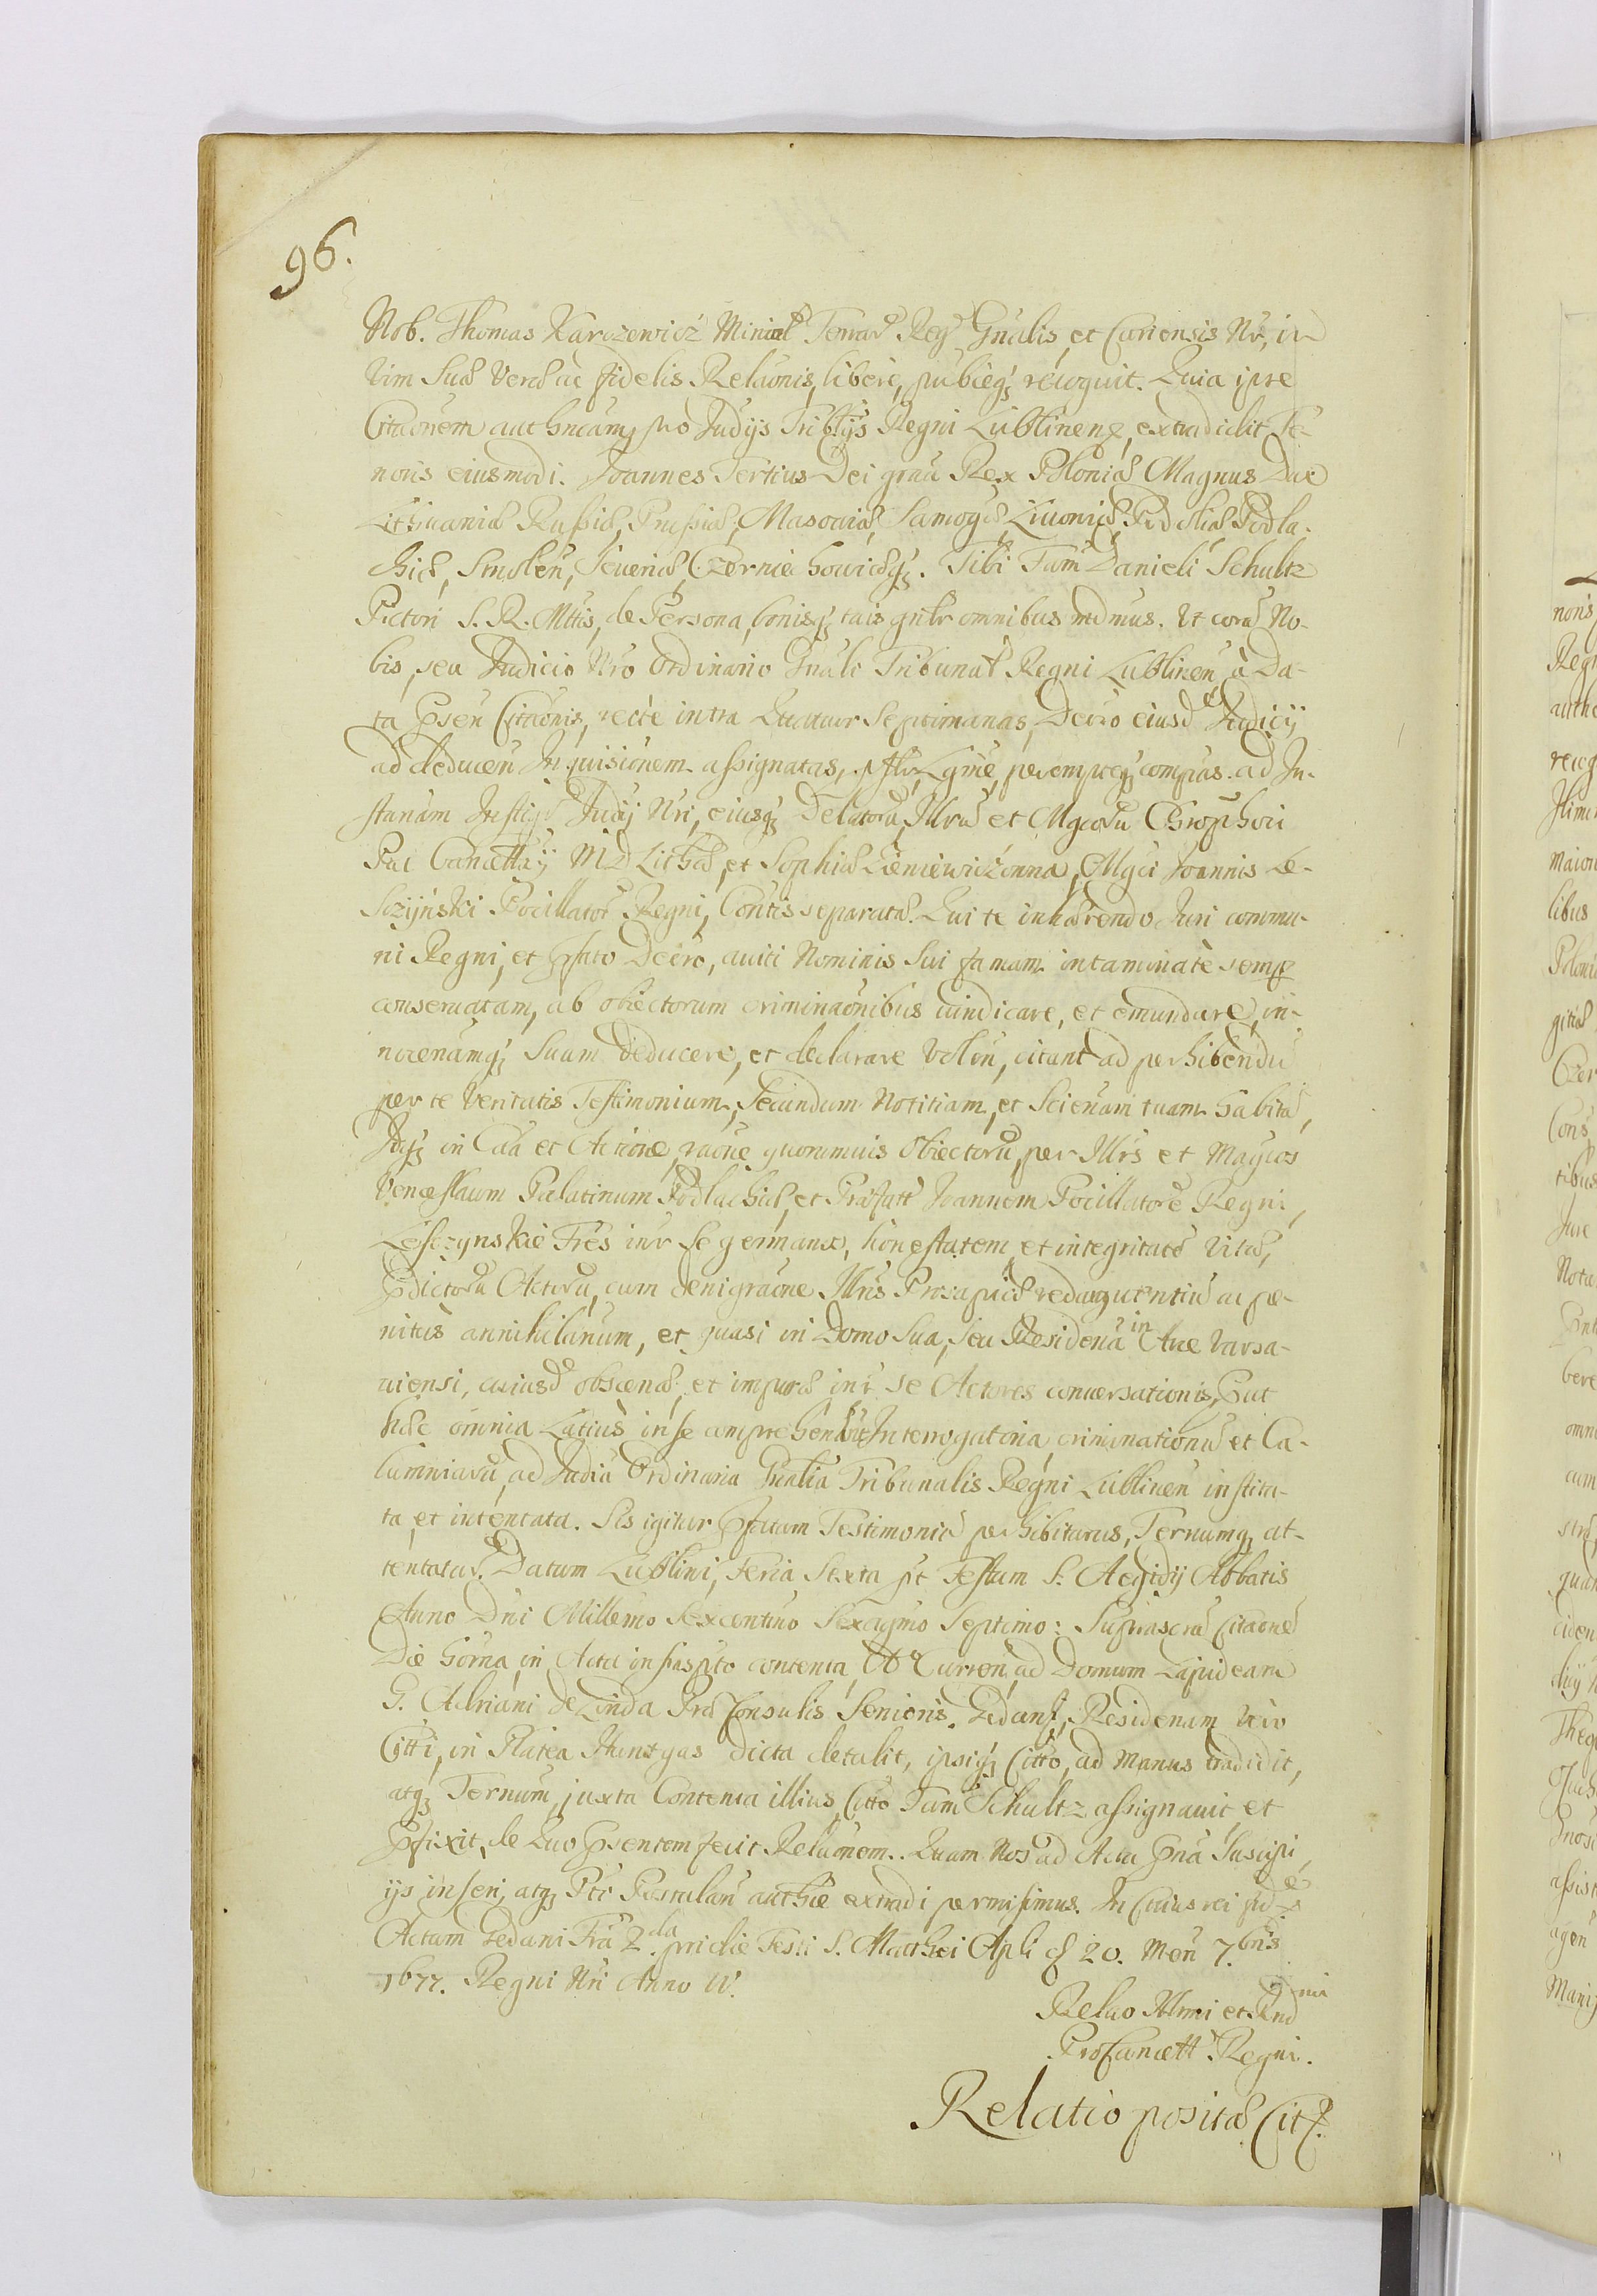 96.
Nob. Thomas Karczewicz Miniał Terrar Reg Gnalis, et Curiensis Nr, in
Vim Suæ veræ ac fidelis Relaonis, libere, publeq; recognit. Quia ipse
Citaonem authencam, pro Judijs Triblijs Regni Lublinens, extradidit Te-
noris eiusmodi. Joannes Tertius Dei graa Rex Poloniæ Magnus Dux
Lithuaniæ Russiæ, Prussiæ, Masouiæ, Samogæ, Liuoniæ, Podoliæ Podla-
chiæ, Smolen, Seueriæ, Czerniechouiæq;. Tibi Fam Danieli Schultz
Pictori S. R. Mttis, de Persona, bonisq; tuis gnlr omnibus mdmus. Ut cora No-
bis, seu Judicio Nro Ordinario Gnali Tribunał Regni Lublinen, a Da-
ta Psen Citaonis, recte intra Quatuor Septimanas, Decro eiusd Judicij
ad deducen Inquisionem assignatas, psłr, Lgme, peremptq; compas. ad In-
stanam Instigr Judij Nri, eiusq; Delatoru, Illru et Mgcoru Christophori
Pac Cancellarij M D Lithæ, et Sophiæ Lieniewiczonna, Mgci Joannis Le-
Sczynski Pocillator Regni, Contis separatæ. Qui te inhærendo Juri commu-
ni Regni, et Pfato Decro, auiti Nominis Sui famam intaminate semp
conseruatam, ab obiectorum criminaonibus vindicare, et emundare, in-
nocenamq; Suam deducere, et declarare Volen, citant ad perhibendu
per te Veritatis Testimonium, Secundum Notitiam, et Scienam tuam habita,
Idq; in Caa et Actione, raone quorumuis Obiectoru, per Illrs et Magcos
Venceslaum Palatinum Podlachiæ, et Præfatt Joannem Pocillatore Regni,
Lesczynskie Frēs inr Se germanos, honestatem et integritate Vitæ,
Pdictoru Actoru, cum denigraone Illris Prosapiæ redarguentiu ac pe-
nitus annihilanum, et quasi in Domo Sua, seu Residena in Arce Varsa-
uiensi, cuiusd obscenæ et impuræ inr se Actores conuersationis, Put
hæc omnia Latius in se comprehendut Interrogatoria criminationu et Ca-
lumniaru, ad Judia Ordinaria Gnalia Tribunalis Regni Lublinen institu-
ta et intentata. Sis igitur Pfatum Testimoniu perhibiturus, Ternumq; at-
tentatur. Datum Lublini, Feria Sexta pt Festum S. Aegidij Abbatis
Anno Dni Millemo Sexcentmo Sexagmo Septimo: Suprascra Citaone
Die horna in Acta infrascpto contenta, Ao Curren, ad Domum Lapideam
G. Adriani de Linda Præ Consulis Senioris Gedans, Residenam Vero
Citti, in Platea Huntgas dicta detulit, ipsiq; Citto, ad manus tradidit,
atq; Ternum, juxta Contenta illius, Citto Fam Schultz assignauit et
Pfixit, de Quo Psentem fecit Relaonem. Quam Nos ad Acta Pna Suscipi,
ijs inseri, atq; Ptr Postulan authce extradi permisimus. In Cuius rei fide
Actum Gedani Fria 2da pridie Festi S. Matthei Apli d 20. Men 7.bris
1677. Regni Nri Anno IV.
Relao Illmi et Rnd
Procancell Regni.
Relatio positæ Cit.